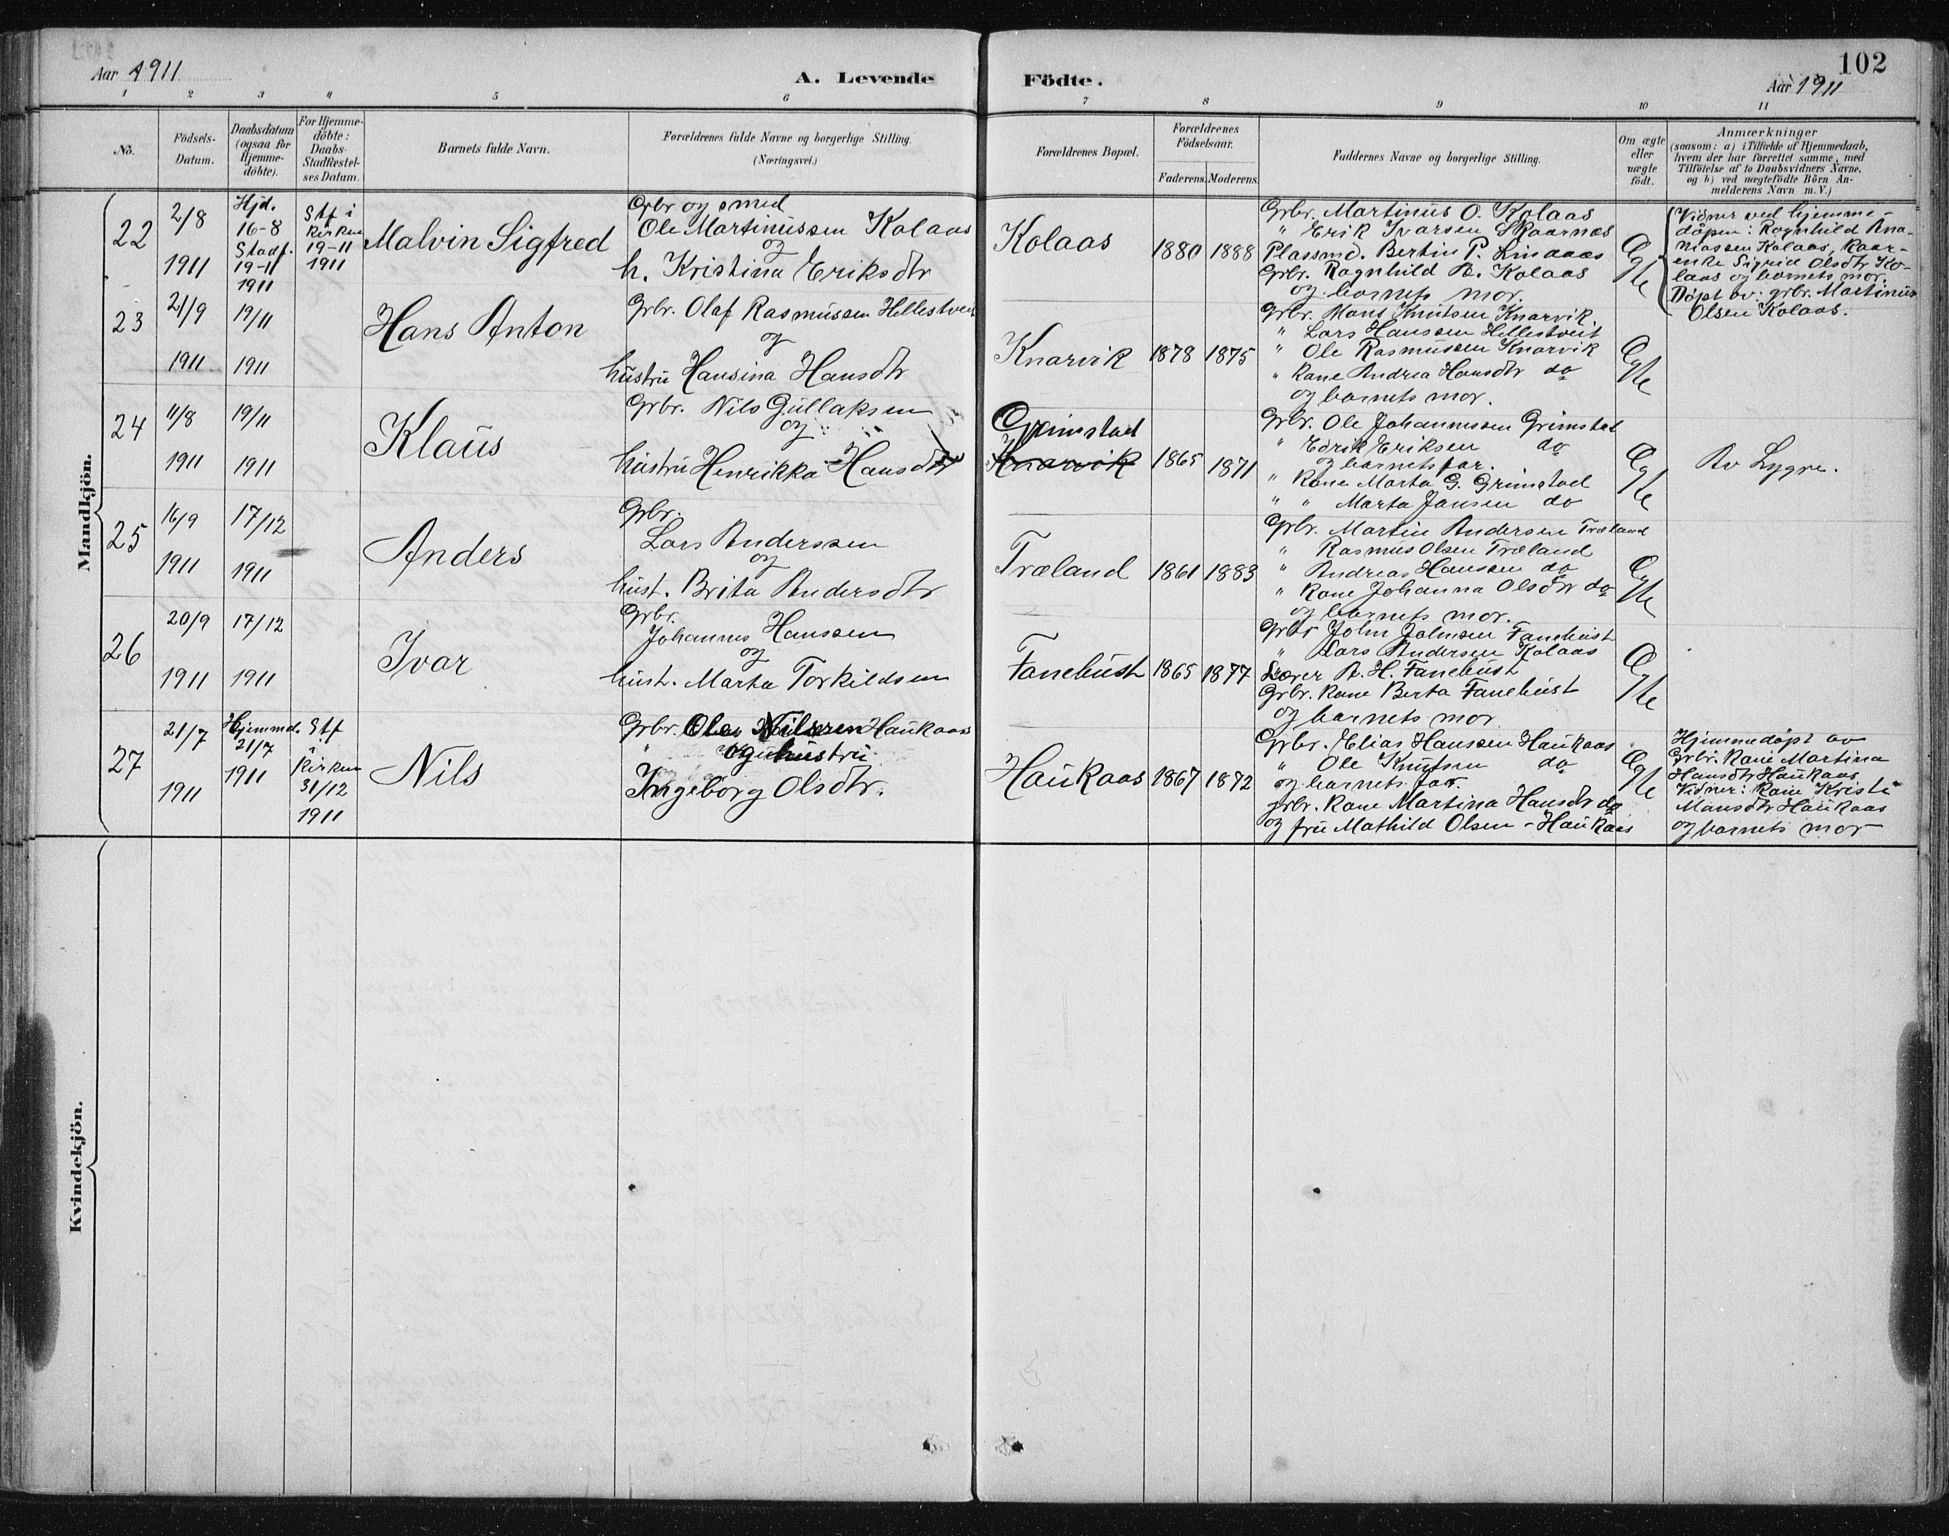 Aar 1911
A. Levende Födte.
102
Aar 1911
1 2 3 4 5 6 7 8 9 10 11
No.
Födsels-Datum.
Daabsdatum (ogsaa for Hjemme-döbte).
For Hjemme-döbte: Daabs-Stadfæstel-ses Datum.
Barnets fulde Navn.
Forældrenes fulde Navne og borgerlige Stilling. (Næringsvei.)
Forældrenes Bopæl.
Forældrenes Födselsaar.
Faderens. Moderens.
Faddernes Navne og borgerlige Stilling.
Om ægte eller uægte födt.
Anmærkninger
(saasom: a) i Tilfælde af Hjemmedaab, hvem der har forrettet samme, med Tilföielse af to Daabsvidners Navne, og b) ved uægtefödte Börn An-melderens Navn m. V.)
Mandkjön.
22
2/8
1911
Hjd.
16-8
Stadf.
19-11
1911
Stf i
Kirken
19-11
1911
Malvin Sigfred
Grbr og smed
Ole Martinussen Kolaas
og
h. Kristina Eriksdtr
Kolaas
1880 1888
Grbr. Martinus O. Kolaas
" Erik Ivarsen Skaarnes
Plassmd. Bertin P. Lindaas
Grbr. Ragnhild A. Kolaas
og barnets mor.
Egte
Vidner ved hjemme-
döpen: Ragnhild Ana-
niassen Kolaas, Kaar-
enke Sigrid Olsdtr Ko-
laas og barnets mor.
Döpt av: grbr. Martinus
Olsen Kolaas.
23
21/9
1911
19/11
1911
Hans Anton
Grbr. Olaf Rasmussen Hellestveit
og
hustru Hansina Hansdtr
Knarvik
1878 1875
Grbr. Mons Knutsen Knarvik
" Lars Hanssen Hellestveit
" Ole Rasmussen Knarvik
" Kone Andrea Hansdtr do
og barnets mor.
Egte
24
11/8
1911
19/11
1911
Klaus
Grbr. Nils Gullaksen
og
hustru Henrikka Hansdtr
Grimstad
Knarvik
1865 1871
Grbr. Ole Johannessen Grimstad
" Edrik Eriksen do
og barnets far.
" Kone Marta G. Grimstad
" " Marta Jansen do
Egte
Av Lygre.
25
16/9
1911
17/12
1911
Anders
Grbr.
Lars Anderssen
og
hust. Brita Andersdtr
Træland
1861 1883
Grbr. Martin Andersen Træland
" Rasmus Olsen Træland
" Andreas Hanssen do
" Kone Johanna Olsdtr do
og barnets mor.
Egte
26
20/9
1911
17/12
1911
Ivar
Grbr.
Johannes Hanssen
og
hust. Marta Torkildsen
Fanebust
1865 1877
Grbr John Johnsen Fanebust
" Lars Andersen Kolaas
Lærer A. H. Fanebust
Grbr. Kone Berta Fanebust
og barnets mor
Egte
27
21/7
1911
Hjemmd.
21/7
1911
Stf
i
Kirken
31/12
1911
Nils
Grbr. Ole Nilssen Haukaas
" og hustru
Ingeborg Olsdtr.
Haukaas
1867 1872
Grbr. Elias Hanssen Haukaas
" Ole Knutsen do
og barnets far.
grbr. Kone Martina Hansdtr do
og fru Mathild Olsen - Haukaas
Egte
Hjemmedöpt av
Grbr. Kone Martina
Hansdtr Haukaas
Vidner: Kone Kristi
Monsdtr Haukaas
og barnets mor
Kvindekjön.